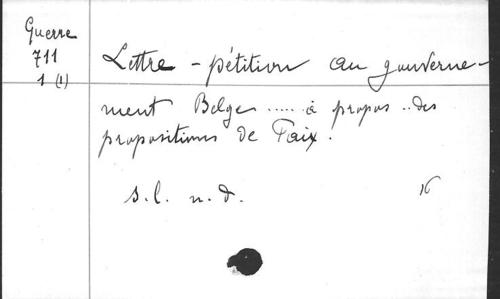 Guerre
711
1 (1)
Lettre - pétition au gouverne-
ment Belge ..... à propos .. des
propositions de Paix.
s.l. n.d.